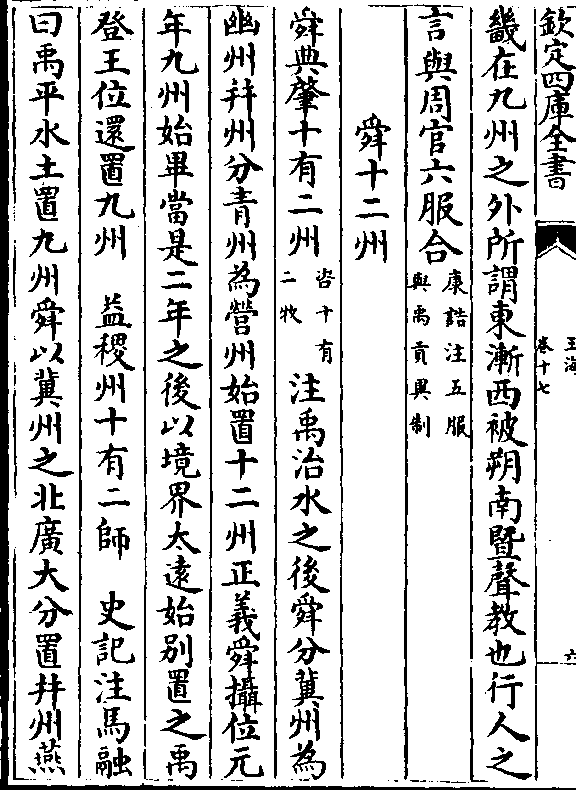 欽定四庫全書
玉海
卷十七
六
畿在九州之外所謂東漸西被朔南暨聲教也行人之
言與周官六服合康誥注五服與禹貢異制
舜十二州
舜典肇十有二州咨十有二牧注禹治水之後舜分冀州為
幽州并州分青州為營州始置十二州正義舜攝位元
年九州始畢當是二年之後以境界太遠始別置之禹
登王位還置九州　益稷州十有二師　史記注馬融
曰禹平水土置九州舜以冀州之北廣大分置并州燕